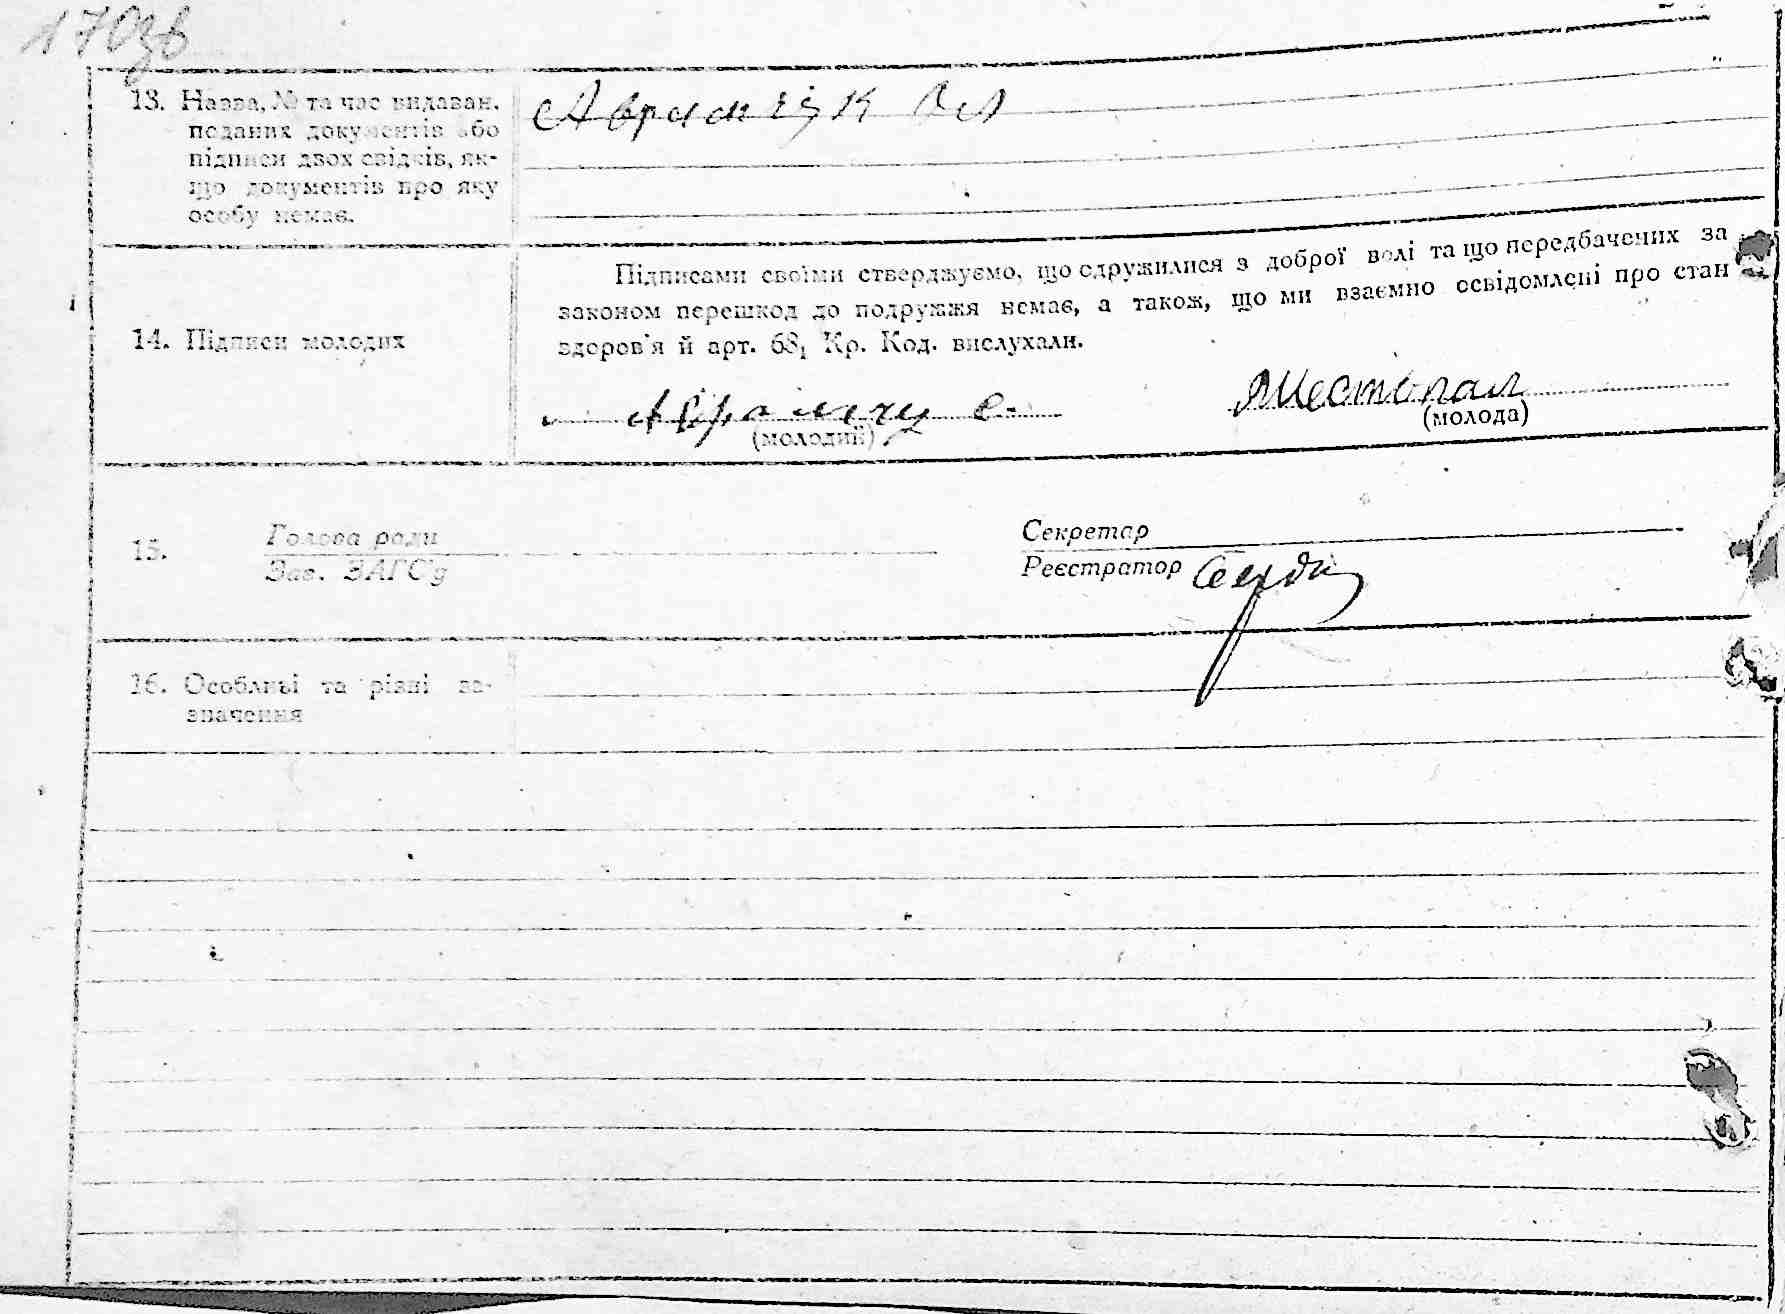 170зв
13. Назва, № та час видаван.
поданих документів або
підписи двох свідків, як-
що документів про яку
особу немає.
Аврамчук
14. Підписи молодих
Підписами своїми стверджуємо, що одружилися з доброї волі та що передбачених за
законом перешкод до подружжя немає, а також, що ми взаємно освідомлені про стан
здоров'я й арт. 68₁ Кр. Код. вислухали.
(молодий)
(молода)
15.
Голова ради
Зав. ЗАГС'у
Секретар
Реєстратор
16. Особливі та різні за-
значення